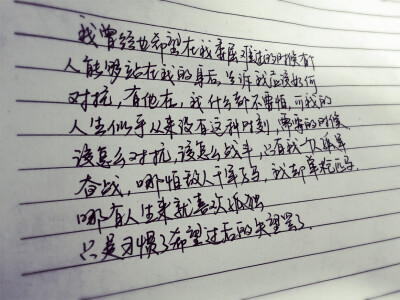 我曾经也希望在我委屈难过的时候有
人能够站在我的身后,告诉我应该如何
对抗,有他在,我什么都不要怕,而我的
人生似乎从来没有这种时刻,需要的时候
该怎么对抗,该怎么战斗,只有我一人孤军
奋战,哪怕敌人千军万马,我却单枪匹马
哪有人生来就喜欢孤独
只是习惯了希望过后的失望罢了.